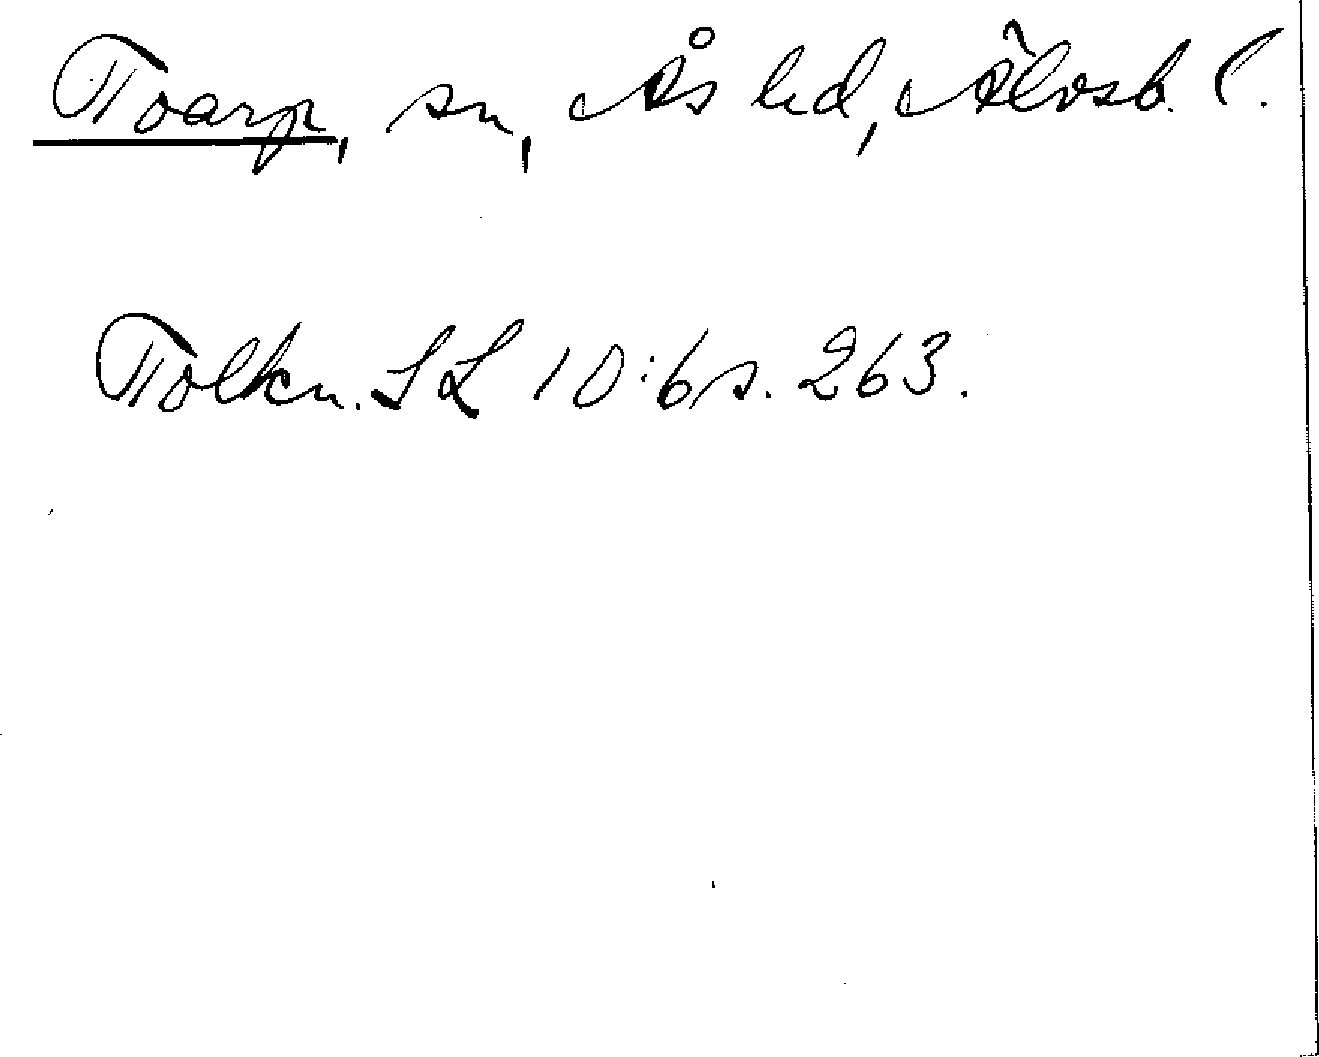 Toarp, sn, Ås hd, Älvsb. l.
Tolkn. SL 10:6 s. 263.